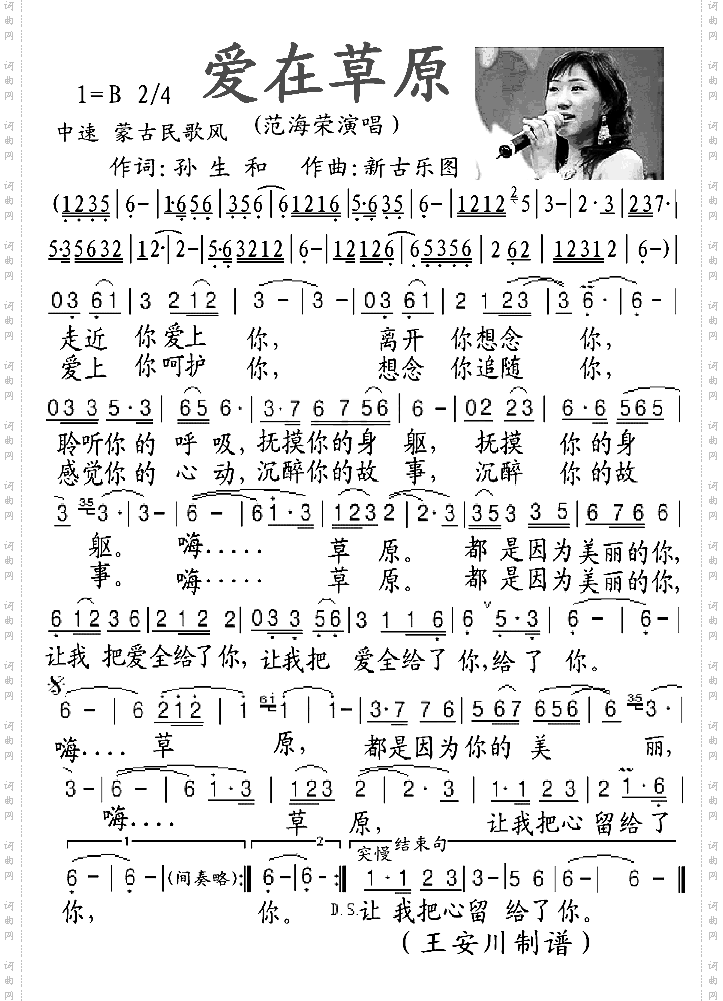 爱在草原
1=B 2/4
(范海荣演唱)
中速 蒙古民歌风
作词:孙生和 作曲:新古乐图
(1235|6-|1·656|356|61216|5·635|6·-|1212 2 5|3-|2·3|237·|
5·35632|12·|2-|5·63212|6-|12126|65356|2 62|12312|6-)|
03 61|3 2 12|3-|3-|03 61|2 1 23|3 6·|6-|
走近 你爱上 你, 离开 你想念 你,
爱上 你呵护 你, 想念 你追随 你,
03 3 5·3|65 6·|3·7 6 7 56|6-|02 23|6·6 565|
聆听你的呼吸,抚摸你的身躯, 抚摸 你的身
感觉你的心动,沉醉你的故事, 沉醉 你的故
3 35 3·|3-|6-|61·3|1232|2·3|335 3 5|6 76 6|
躯。 嗨····· 草原。 都是因为美丽的你,
事。 嗨····· 草原。 都是因为美丽的你,
6 12 3 6|2 12 2|03 3 5 6|3 1 1 6|6 V 5·3|6-|6-|
让我 把爱全给了你,让我把 爱全给了你,给了 你。
6-|6 212|1 61 1|1-|3·7 7 6|5 67 656|6 35 3·|
嗨···· 草 原, 都是因为你的 美 丽,
3-|6-|6 1·3|123|2-|2·3|1·1 23|2 1·6|
嗨···· 草 原, 让我把心留给了
1 2 突慢 结束句
6-|6-|(间奏略):‖6-|6-:‖1·1 23|3-|5 6|6-|6-‖
你, 你。 D.S.让我把心留 给了你。
(王安川制谱)
词曲网